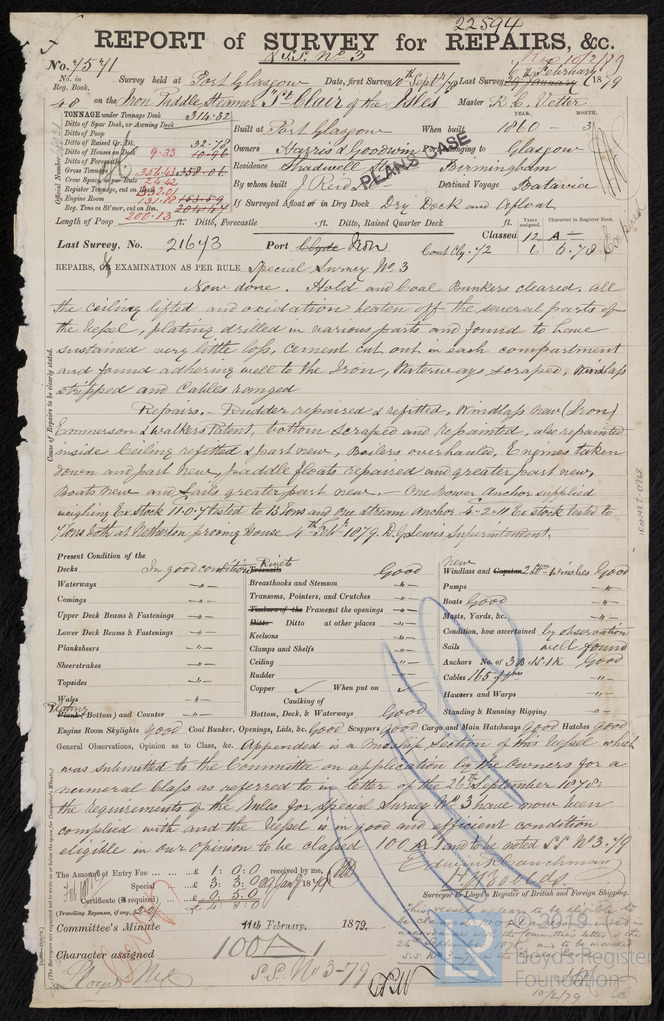 22594
REPORT of SURVEY for REPAIRS, &c.
S.S. No 3
No. 7571
Survey held at Port Glasgow Date, first Survey 10th Septr /78 Last Survey 1879
No. in Reg. Book.
40 on the Iron Paddle Steamer "St Clair of the Isles" Master R. C. Vetter
TONNAGE under Tonnage Deck 314.32
Ditto of Spar Deck, or Awning Deck
Ditto of Poop
Ditto of Raised Qr. Dk. 32.78
Ditto of Houses on Deck 9.33
Ditto of Forecastle
Gross Tonnage 356.43
Crew Space, as per Rule 24.42
Register Tonnage, cut on Beam
Engine Room
Reg. Tons as St'mer, cut on Bm. 200.13
Built at Port Glasgow When built 1860 - 3
YEAR. MONTH.
Owners Harris & Goodwin Port belonging to Glasgow
Residence Shadwell St Birmingham
PLANS CASE
By whom built J. Reid Destined Voyage Batavia
If Surveyed Afloat or in Dry Dock Dry Dock and Afloat
Length of Poop ft. Ditto, Forecastle ft. Ditto, Raised Quarter Deck ft.
Years assigned. Character in Register Book.
Last Survey, No. 21643 Port Clyde Iron Classed 12 A
Cont Cly. 72 6 6.78
REPAIRS, or EXAMINATION AS PER RULE Special Survey No 3
Now done. Hold and Coal Bunkers cleared, all
the Ceiling lifted and oxidation beaten off the several parts of
the Vessel, plating drilled in various parts and found to have
sustained very little loss, cement cut out in each compartment
and found adhering well to the Iron, Waterways scraped, Windlass
stripped and Cables ranged
Repairs. Rudder repaired & refitted, Windlass new (Iron)
Emmerson & Walkers Patent, bottom scraped and repainted, also repainted
inside Ceiling refitted & part new, Boilers overhauled, Engines taken
down and part new, paddle floats repaired and greater part new,
Boats new and Sails greater part new. One Bower Anchor supplied
weighing Ex Stock 11.0.7 tested to 13 tons and one Stream Anchor 4.2.11 Ex stock tested to
7 tons both at Netherton proving House 4th Feb 1879. D. G. Lewis Superintendent.
Cause of Repairs to be clearly stated.
Present Condition of the
Decks In good condition
Waterways
Comings
Upper Deck Beams & Fastenings
Lower Deck Beams & Fastenings
Planksheers
Sheerstrakes
Topsides
Wales
Plating (Bottom) and Counter
Rivets Good
Breasthooks and Stemson
Transoms, Pointers, and Crutches
Timbers of the Frames at the openings
Ditto Ditto at other places
Keelsons
Clamps and Shelfs
Ceiling
Rudder
Copper ✓ When put on ✓
Caulking of
Bottom, Deck, & Waterways Good
new
Windlass and Capstan Winches Good
Pumps
Boats Good
Masts, Yards, &c.
Condition, how ascertained by observation
Sails well found
Anchors No. of 3B 1S 1K Good
Cables 165
Hawsers and Warps
Standing & Running Rigging
Engine Room Skylights Good Coal Bunker, Openings, Lids, &c. Good Scuppers Good Cargo and Main Hatchways Good Hatches Good
General Observations, Opinion as to Class, &c. Appended is a Midship Section of this Vessel which
was submitted to the Committee on application by the Owners for a
numeral Class as referred to in letter of the 26th September 1878:
the requirements of the Rules for Special Survey No 3 have now been
complied with and the Vessel is in good and efficient condition
eligible in our opinion to be classed 100 A and to be noted SS No 3-79
The Amount of Entry Fee £ 1 : 0 : 0 received by me,
Special £ 3 : 3 : 0
Certificate (if required) £ 0 : 5 : 0
£ 4 : 8 : 0
(Travelling Expenses, if any,
Surveyor to Lloyd's Register of British and Foreign Shipping.
Committee's Minute 11th February, 1879.
Character assigned 100 A 1
S.S. No 3-79
10/2/79
© 2019
Lloyd's Register
Foundation